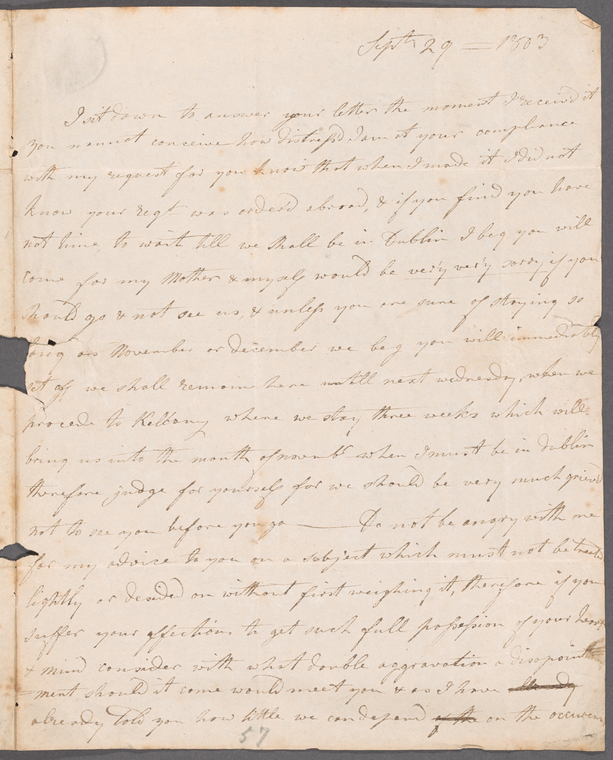 Septr 29 — 1803
I sit down to answer your letter the moment I receiv'd it
you cannot conceive how distress'd I am at your compliance
with my request for you know that when I made it I did not
know your regt was order'd abroad, & if you find you have
not time to wait till we shall be in Dublin I beg you will
come for my Mother & myself would be very very sorry if you
should go & not see us, & unless you are sure of staying so
long as November or december we beg you will immediately
set off we shall remain here untill next wednesday, when we
procede to where we stay three weeks which will
bring us into the month of novembr when I must be in dublin
therefore judge for yourself for we should be very much griev'd
not to see you before you go — Do not be angry with me
for my advice to you on a subject which must not be treated
lightly or decided on without first weighing it, therefore if you
suffer your affections to get such full possession of your heart
& mind consider with what double aggravation a disapoint
-ment should it come would meet you & as I have already
already told you how little we can depend of the on the
57